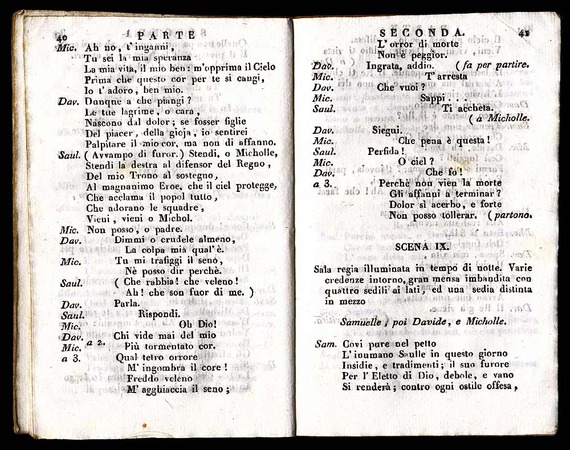 40 PARTE
Mic. Ah no, t'inganni,
Tu sei la mia speranza
La mia vita, il mio ben: m'opprima il Cielo
Prima che questo cor per te si cangi,
Io t'adoro, ben mio.
Dav. Dunque a che piangi?
Le tue lagrime, o cara,
Nascono dal dolor; se fosser figlie
Del piacer, della gioja, io sentirei
Palpitare il mio cor, ma non di affanno.
Saul. (Avvampo di furor.) Stendi, o Micholle,
Stendi la destra al difensor del Regno,
Del mio Trono al sostegno,
Al magnanimo Eroe, che il ciel protegge,
Che acclama il popol tutto,
Che adorano le squadre,
Vieni, vieni o Michol.
Mic. Non posso, o padre.
Dav. Dimmi o crudele almeno,
La colpa mia qual'è.
Mic. Tu mi trafiggi il seno,
Nè posso dir perchè.
Saul. (Che rabbia! che veleno!
Ah! che son fuor di me.)
Dav. Parla.
Saul. Rispondi.
Mic. Oh Dio!
Dav. Chi vide mai del mio
Mic. a 2. Più tormentato cor.
a 3. Qual tetro orrore
M'ingombra il core!
Freddo veleno
M'agghiaccia il seno;
SECONDA. 41
L'orror di morte
Non è peggior.
Dav. Ingrata, addio. (fa per partire.
Mic. T'arresta
Dav. Che vuoi?
Mic. Sappi...
Saul. Ti accheta.
(a Micholle.
Dav. Siegui.
Mic. Che pena è questa!
Saul. Perfida!
Mic. O ciel?
Dav. Che fo!
a 3. Perchè non vien la morte
Gli affanni a terminar?
Dolor sì acerbo, e forte
Non posso tollerar. (partono.
SCENA IX.
Sala regia illuminata in tempo di notte. Varie
credenze intorno, gran mensa imbandita con
quattro sedili ai lati, ed una sedia distinta
in mezzo
Samuelle, poi Davide, e Micholle.
Sam. Covi pure nel petto
L'inumano Saulle in questo giorno
Insidie, e tradimenti; il suo furore
Per l'Eletto di Dio, debole, e vano
Si renderà; contro ogni ostile offesa,